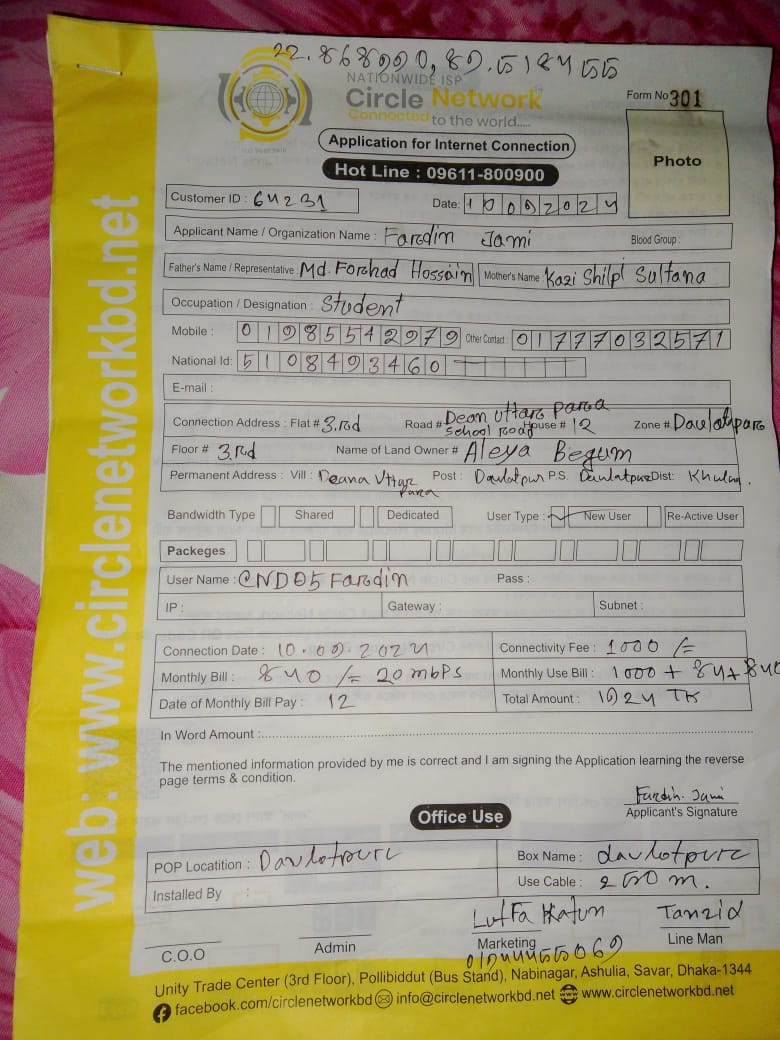 NATIONWIDE ISP
Circle Network
Connected to the world.....
Form No 301
Application for Internet Connection
Photo
Hot Line : 09611-800900
Customer ID : 64231
Date: 10092024
Applicant Name / Organization Name : Fardin Jami Blood Group :
Father's Name / Representative : Md. Forhad Hossain Mother's Name : Kazi Shilpi Sultana
Occupation / Designation : Student
Mobile : 01985542979 Other Contact : 01777032571
National Id: 5108493460
E-mail :
Connection Address : Flat # 3.rd Road # Dean Uttara Para School Road House # 12 Zone #
Floor # 3.rd Name of Land Owner # Aleya Begum
Permanent Address : Vill : Deana Uttar Para Post : Daulatpur P.S. Daulatpur Dist: Khulna.
Bandwidth Type Shared Dedicated User Type : New User Re-Active User
Packeges
User Name : CND05 Farodin Pass :
IP : Gateway : Subnet :
Connection Date : 10.09.2024 Connectivity Fee : 1000 /=
Monthly Bill : 840 /= 20 mbps Monthly Use Bill : 1000 + 84+840
Date of Monthly Bill Pay : 12 Total Amount : 1924 TK
In Word Amount :
The mentioned information provided by me is correct and I am signing the Application learning the reverse
page terms & condition.
Fardin. Jami
Applicant's Signature
Office Use
POP Locatition : Davlotpure Box Name : davlotpure
Installed By : Use Cable : 250 m.
Lutfa Khatun Tanzid
C.O.O Admin Marketing Line Man
Unity Trade Center (3rd Floor), Pollibiddut (Bus Stand), Nabinagar, Ashulia, Savar, Dhaka-1344
facebook.com/circlenetworkbd info@circlenetworkbd.net www.circlenetworkbd.net
web: www.circlenetworkbd.net